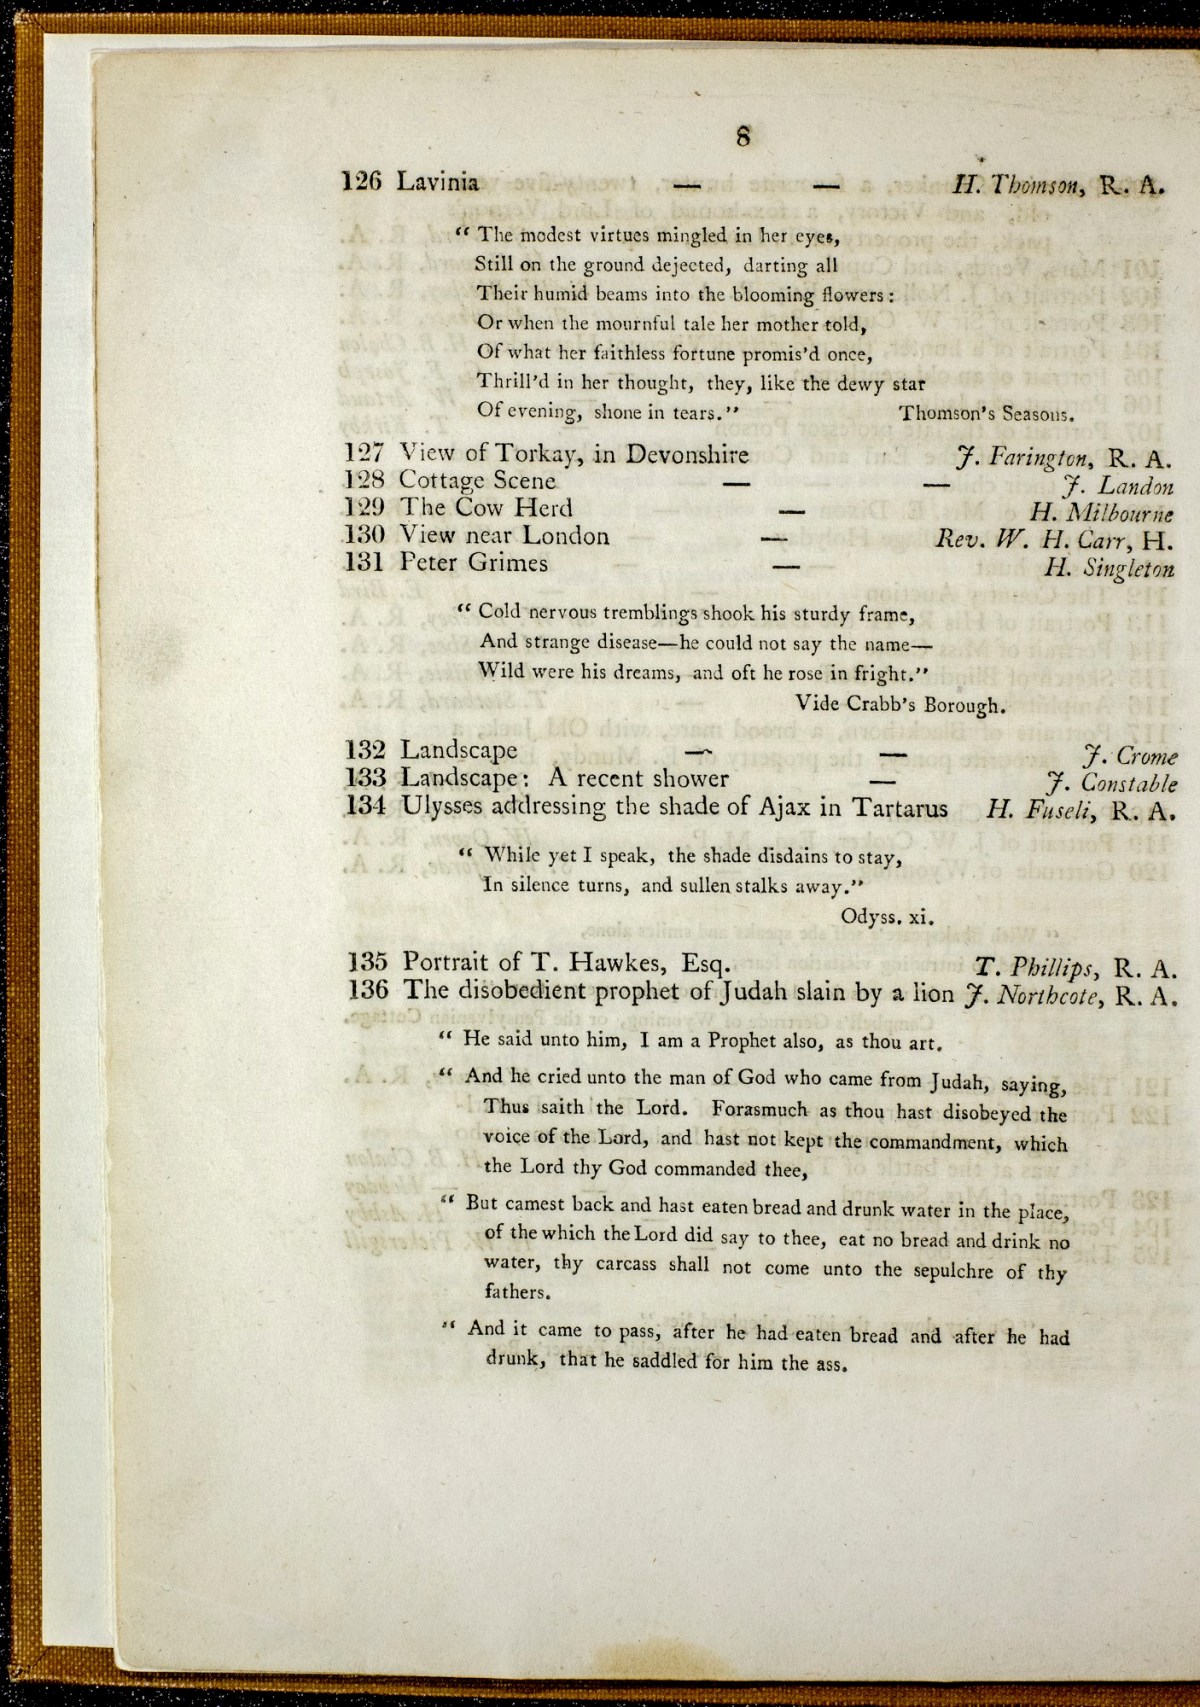 8
126 Lavinia — — H. Thomson, R. A.
“ The modest virtues mingled in her eyes,
Still on the ground dejected, darting all
Their humid beams into the blooming flowers :
Or when the mournful tale her mother told,
Of what her faithless fortune promis’d once,
Thrill’d in her thought, they, like the dewy star
Of evening, shone in tears.” Thomson’s Seasons.
127 View of Torkay, in Devonshire J. Farington, R. A.
128 Cottage Scene — — J. Landon
129 The Cow Herd — H. Milbourne
130 View near London — Rev. W. H. Carr, H.
131 Peter Grimes — H. Singleton
“ Cold nervous tremblings shook his sturdy frame,
And strange disease—he could not say the name—
Wild were his dreams, and oft he rose in fright.”
Vide Crabb’s Borough.
132 Landscape — — J. Crome
133 Landscape : A recent shower — J. Constable
134 Ulysses addressing the shade of Ajax in Tartarus H. Fuseli, R. A.
“ While yet I speak, the shade disdains to stay,
In silence turns, and sullen stalks away.”
Odyss. xi.
135 Portrait of T. Hawkes, Esq. T. Phillips, R. A.
136 The disobedient prophet of Judah slain by a lion J. Northcote, R. A.
“ He said unto him, I am a Prophet also, as thou art.
“ And he cried unto the man of God who came from Judah, saying,
Thus saith the Lord. Forasmuch as thou hast disobeyed the
voice of the Lord, and hast not kept the commandment, which
the Lord thy God commanded thee,
“ But camest back and hast eaten bread and drunk water in the place,
of the which the Lord did say to thee, eat no bread and drink no
water, thy carcass shall not come unto the sepulchre of thy
fathers.
“ And it came to pass, after he had eaten bread and after he had
drunk, that he saddled for him the ass.